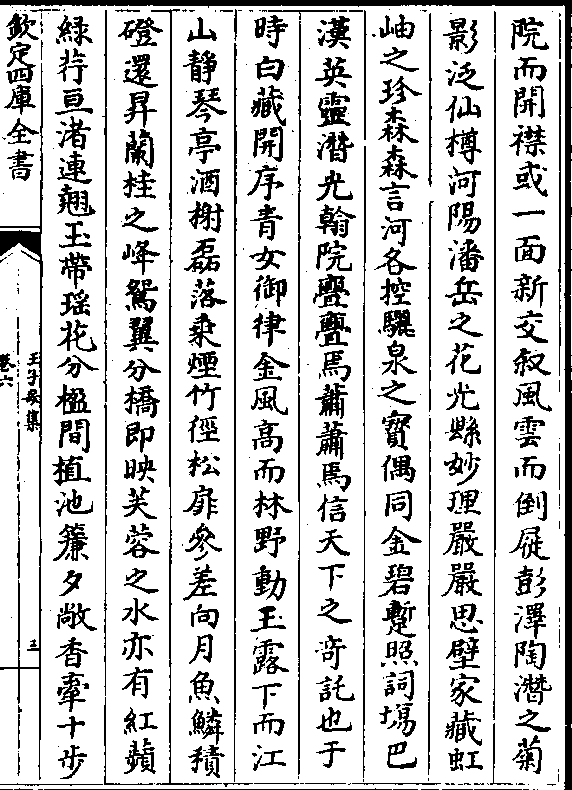 院而開襟或一面新交叙風雲而倒屣彭澤陶潛之菊
影泛仙樽河陽潘岳之花光縣妙理嚴嚴思壁家藏虹
岫之珍森森言河各控驪泉之寳偶同金碧蹔照詞塲巴
漢英靈潛光翰院亹亹焉蕭蕭焉信天下之竒託也于
時白藏開序青女御律金風高而林野動玉露下而江
山静琴亭酒榭磊落乘煙竹徑松扉參差向月魚鱗積
磴還昇蘭桂之峰鴛翼分橋即映芙蓉之水亦有紅蘋
緑荇亘渚連翹玉帶瑶花分楹間植池簾夕敞香牽十步
欽定四庫全書
王子安集
卷六
三